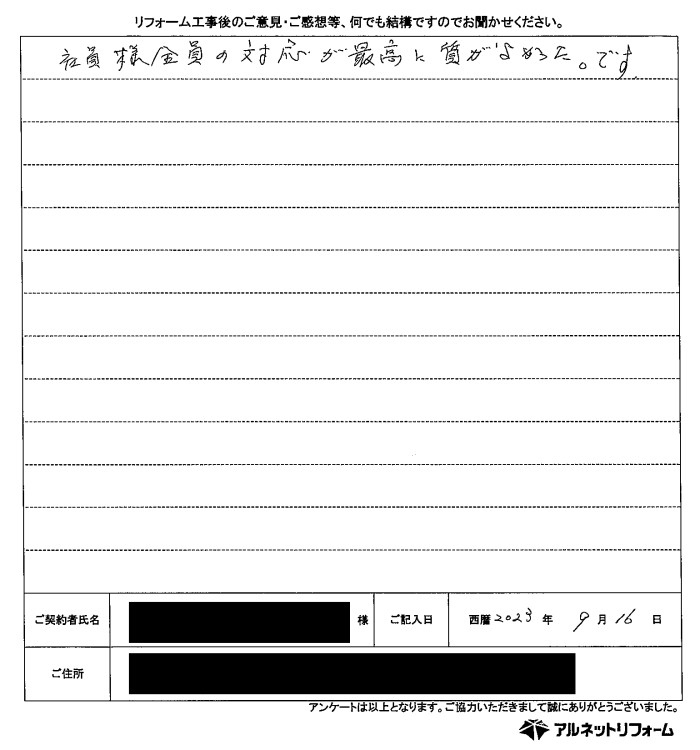 リフォーム工事後のご意見・ご感想等、何でも結構ですのでお聞かせください。
社員様全員の対応が最高に質がよかった。です
ご契約者氏名 様 ご記入日 西暦 2023 年 9 月 16 日
ご住所
アンケートは以上となります。ご協力いただきまして誠にありがとうございました。
アルネットリフォーム